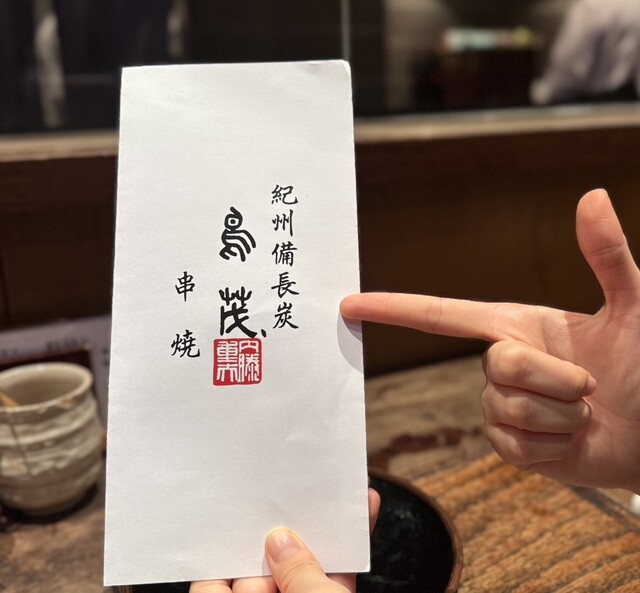 紀州備長炭
鳥茂
串燒
内藤